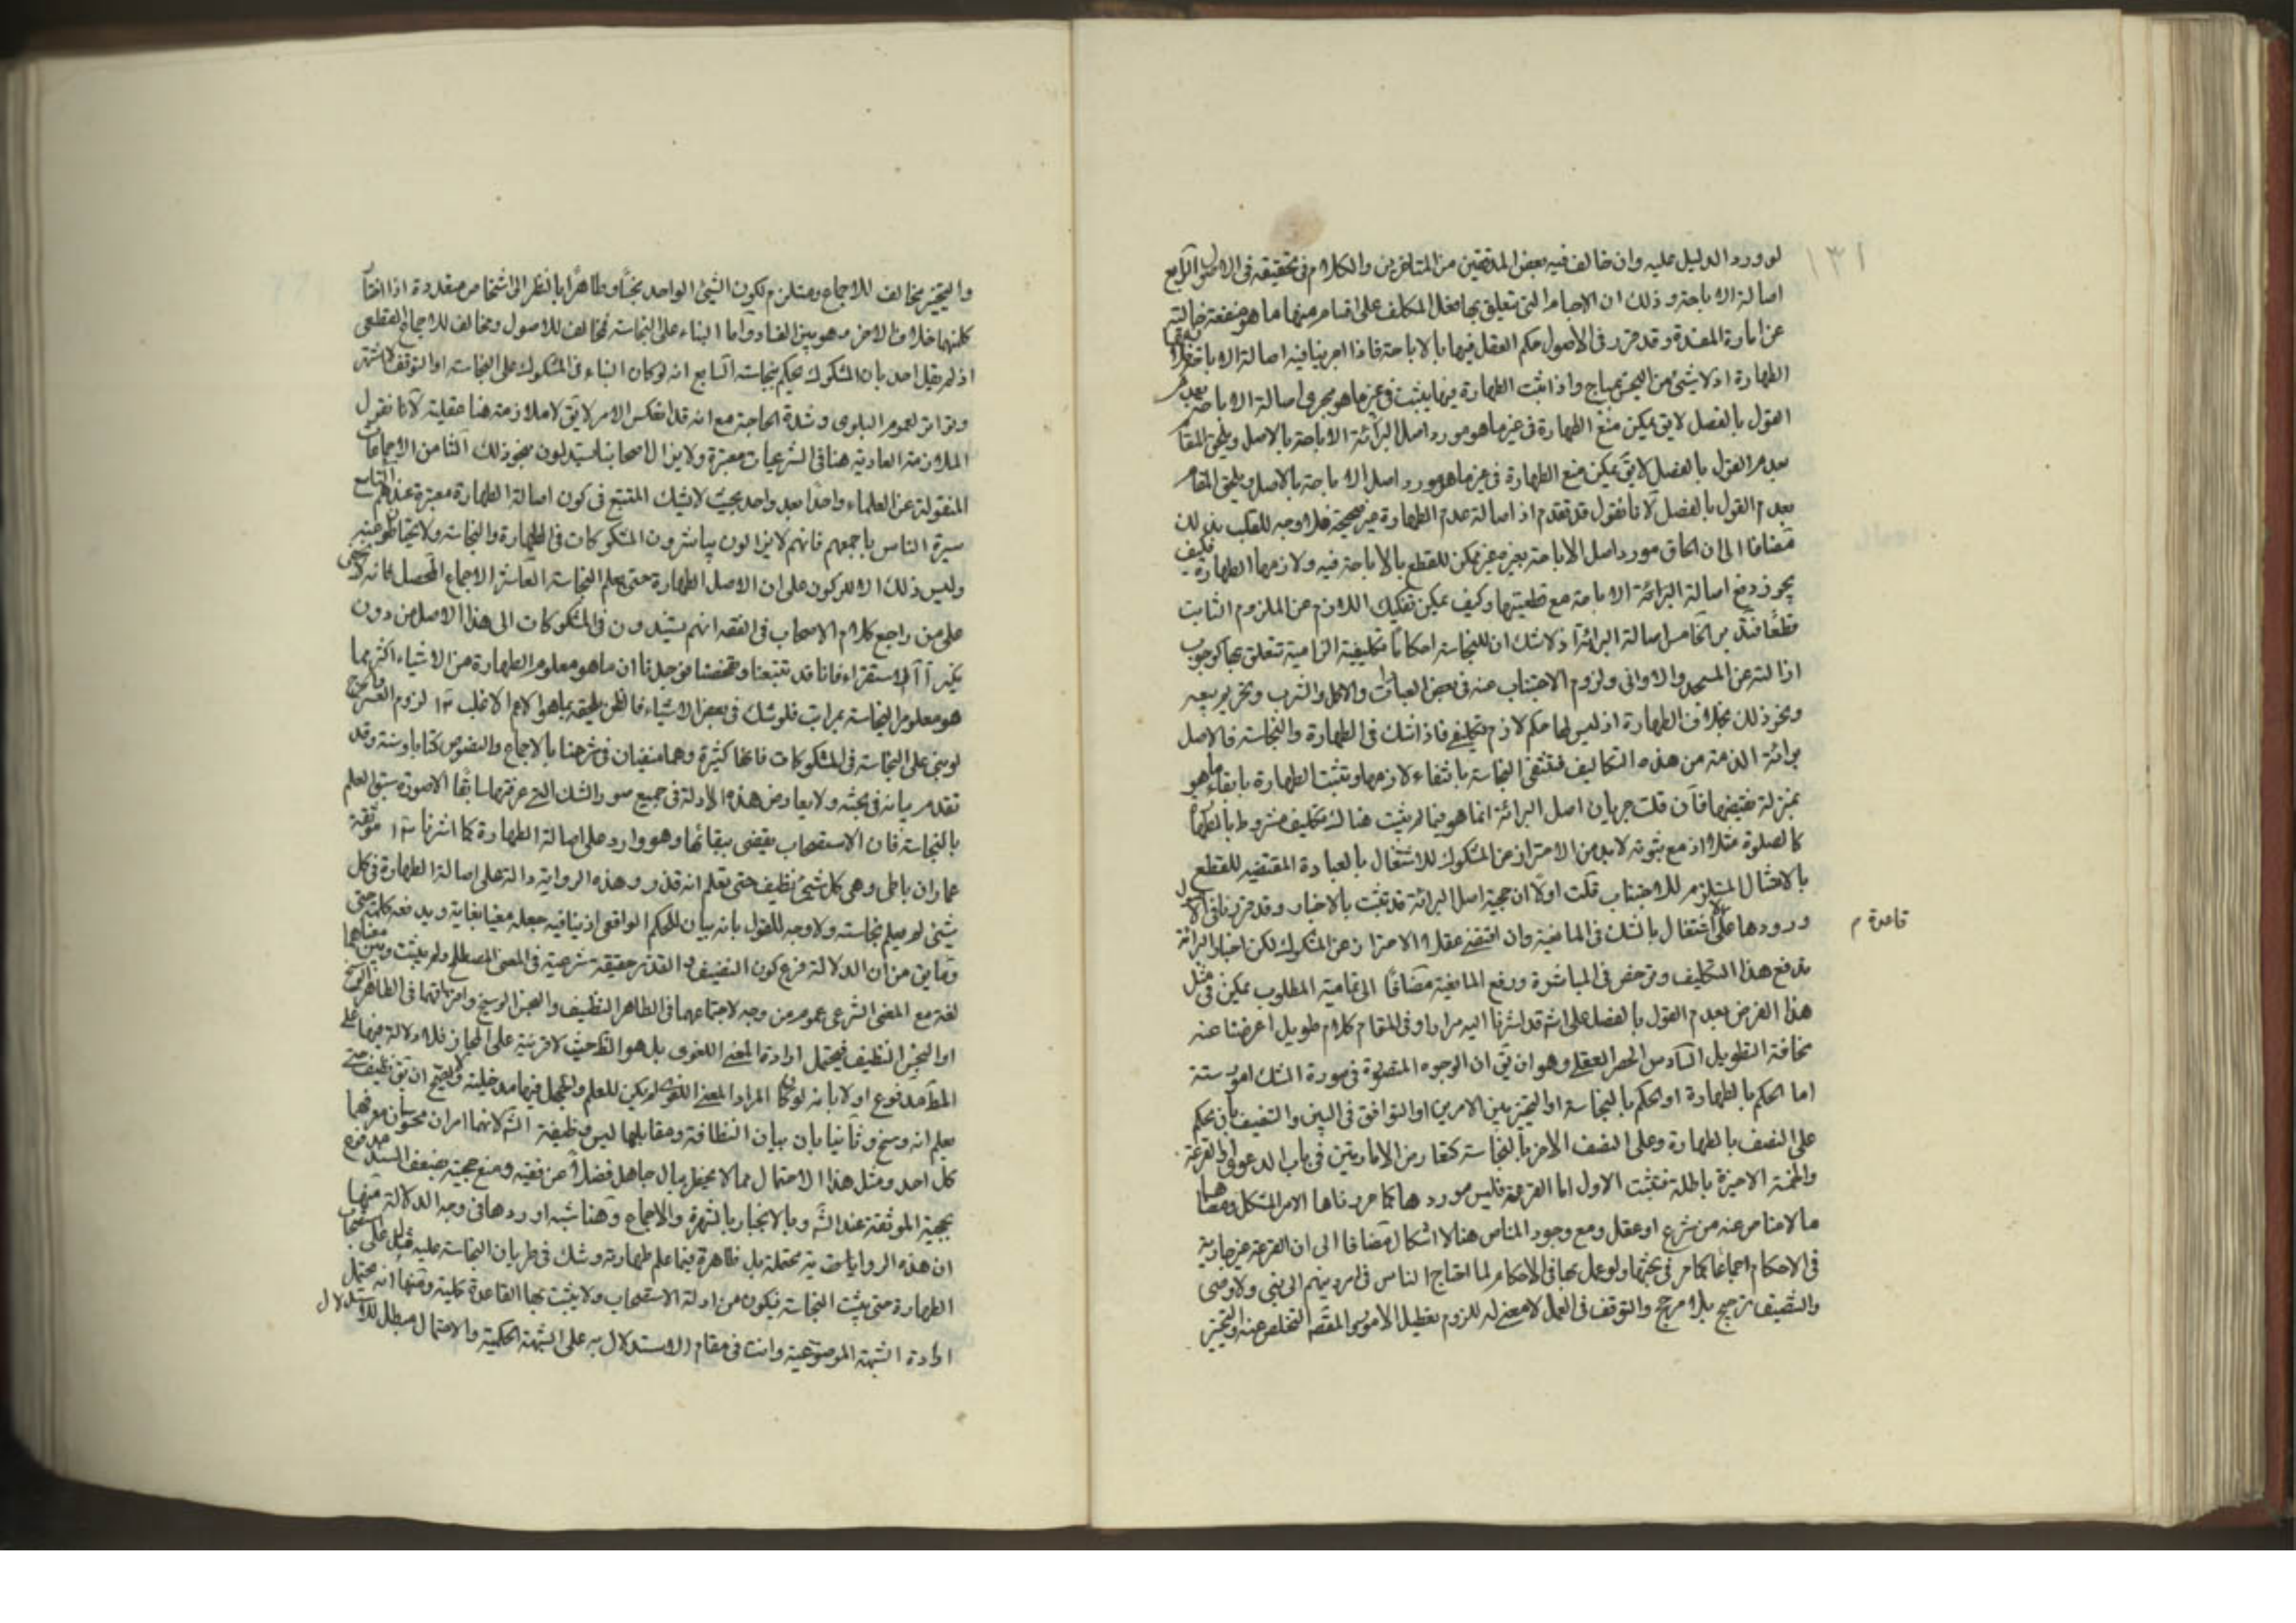 ١٣١
لو ورد الدليل عليه وان خالف فيه بعض المدققين من المتاخرين والكلام فى تحقيقه فى الاصول الرابع
اصالة الاباحة وذلك ان الاجسام التى تتعلق بها فعل المكلف على اقسام منها ما هو منفعة خالية
عن امارة المفسدة وقد قرر فى الأصول حكم العقل فيها بالاباحة فاذا اجرينا فيه اصالة الاباحة
الطهارة اذ لا شيئ من النجس بمباح واذا ثبت الطهارة فيها يثبت فى غير ما هو مجرى اصالة الاباحة بعدم
القول بالفصل لايق يمكن منع الطهارة فى غير ما هو مورد اصل البرائة الاباحة بالاصل ويلحق المقام
بعدم القول بالفصل لايق يمكن منع الطهارة فى غير ما هو مورد اصل الاباحة بالاصل ويلحق المقام
بعدم القول بالفصل لانا نقول قد تقدم ان اصالة عدم الطهارة غير صحيحة فلا وجه للقلب بذلك
مضافا الى ان الحاق مورد اصل الاباحة بغيره غير ممكن للقطع بالاباحة فيه ولازمها الطهارة فكيف
يجوز دفع اصالة البرائة الاباحة مع قطعيتها وكيف يمكن تفكيك اللازم عن الملزوم الثابت
قطعا فتدبر الخامس اصالة البرائة اذ لاشك ان للنجاسة احكاما تكليفية الزامية تتعلق بها كوجوب
ازالته عن المسجد والاوانى ولزوم الاجتناب عنه فى بعض العبادات والاكل والشرب وتحريم بيعه
ونحو ذلك بخلاف الطهارة اذ ليس لها حكم لازم تكليفى فاذا شك فى الطهارة والنجاسة فالاصل
برائة الذمة من هذه التكاليف فتنتفى النجاسة بانتفاء لازمها وتثبت الطهارة بابقاء ما هو
بمنزلة نقيضها فان قلت جريان اصل البرائة انما هو فيما لم يثبت هناك تكليف مشروط بالطهارة
كالصلوة مثلا اذ مع ثبوته لابد من الاحتراز عن المشكوك للاشتغال بالعبادة المقتضيه للقطع
بالامتثال المستلزم للاجتناب قلت اولا ان حجية اصل البرائة قد تثبت بالاخبار وقد قررنا فى الاصول
قاعدة م
ورودها على اشتغال بالشك فى المانعية وان اقتضى عقلا الاحتراز عن المشكوك لكن اخبار البرائة
تدفع هذا التكليف وترخص فى المباشرة ورفع المانعية مضافا الى تمامية المطلوب يمكن فى مثل
هذا الفرض بعدم القول بالفصل على انه قد اشرنا اليه مرارا وفى المقام كلام طويل اعرضنا عنه
مخافة التطويل السادس الحصر العقلى وهو ان يق ان الوجوه المتصورة فى صورة الشك امور ستة
اما الحكم بالطهارة او الحكم بالنجاسة او التخيير بين الامرين او التوافق فى البين والتنصيف بان يحكم
على النصف بالطهارة وعلى النصف الاخر بالنجاسة كتعارض الامارتين فى باب الدعوى او القرعة
والخمسة الاخيرة باطلة فتثبت الاول اما القرعة فليس موردها كما حررناها الامر المشكل
ما لامناص عنه من شرع او عقل ومع وجود المناص هنا لا اشكال مضافا الى ان القرعة غير جارية
فى الاحكام اجماعا كما مر فى بحثها ولو عمل بها فى الاحكام لما احتاج الناس فى امر دينهم الى نبى ولا وصى
والتنصيف ترجيح بلا مرجح والتوقف فى العمل لا معنى له للزوم تعطيل الامور المقتضى التخلص عنه والتخيير
والتخيير مخالف للاجماع ومستلزم لكون الشيئ الواحد نجسا وطاهرا بالنظر الى اشخاص متعددة اذا اختار
كل منهما خلاف الاخر وهو بين الفساد واما البناء على النجاسة فمخالف للاصول ومخالف للاجماع القطعى
اذ لم يقل احد بان المشكوك يحكم بنجاسته السابع انه لو كان البناء فى المشكوك على النجاسة او التوقف لاشتهر
وتواتر لعموم البلوى وشدة الحاجة مع انه قد انعكس الامر لايق لا ملازمة هنا عقلية لانا نقول
الملازمة العادية هنا فى الشرعيات معتبرة ولا يزال اصحابنا يستدلون بنحو ذلك الثامن الاجماعات
المنقولة عن العلماء واحدا بعد واحد بحيث لايشك المتتبع فى كون اصالة الطهارة معتبرة عندهم التاسع
سيرة الناس باجمعهم فانهم لا يزالون يباشرون المشكوكات فى الطهارة والنجاسة ولا يحتاطون فيه
وليس ذلك الا للركون على ان الاصل الطهارة حتى يعلم النجاسة العاشر الاجماع المحصل فانه لا يخفى
على من راجع كلام الاصحاب فى الفقه انهم يستندون فى المشكوكات الى هذا الاصل من دون
نكير الاستقراء فانا قد تتبعنا وتفحصنا فوجدنا ان ما هو معلوم الطهارة من الاشياء اكثر مما
هو معلوم النجاسة بمراتب فلو شك فى بعض الاشياء فالظن يلحقه بما هو الاعم الاغلب لزوم العسر والحرج
لو بنى على النجاسة فى المشكوكات فانها كثيرة وهما منفيان فى شرعنا بالاجماع والنصوص كتابا وسنة وقد
تقدم بيانه فى بحثه ولا يعارض هذه الادلة فى جميع صور الشك التى عرفتها سابقا الا صورة سبق العلم
بالنجاسة فان الاستصحاب يقضى ببقائها وهو وارد على اصالة الطهارة كما اشرنا موثقة
عمار الساباطى وهى كل شيئ نظيف حتى تعلم انه قذر وهذه الرواية دالة على اصالة الطهارة فى كل
شيئ لم يعلم نجاسته ولا وجه للقول بانه بيان للحكم الواقعى اذ ينافيه جعله مغيا بغاية ويدفعه كلمة حتى
وما يق من ان الدلالة فرع كون النظيف والقذر حقيقة شرعية فى المعنى المصطلح ولم يثبت وبين معناهما
لغة مع المعنى الشرعى عموم من وجه لاجتماعهما فى الطاهر النظيف والنجس الوسخ وافتراقهما فى الطاهر الوسخ
او النجس النظيف فيحتمل ارادة المعنى اللغوى بل هو الظ حيث لا قرينة على المجاز فلا دلالة فيها على
المط مدفوع اولا بانه لو كان المراد المعنى اللغوى لم يكن للعلم والجهل فيها مدخلية ويصح ان يق نظيف حتى
يعلم انه وسخ وثانيا بان بيان النظافة ومقابلها ليس وظيفة الش لانهما امران محسوسان يعرفهما
كل احد ومثل هذا الاحتمال مما لا يخطر ببال جاهل فضلا عن فقيه ومنع حجيته بضعف السند مدفوع
بحجية الموثقة عند الش وبالانجبار بالشهرة والاجماع وهنا شبه اوردها فى وجه الدلالة منها
ان هذه الروايات محتملة بل ظاهرة فيما علم طهارته وشك فى طريان النجاسة عليه فيدل على استصحاب
الطهارة حتى يثبت النجاسة فيكون من ادلة الاستصحاب ولا يثبت بها القاعدة كلية ومنها انه محتمل
ارادة الشبهة الموضوعية وانت فى مقام الاستدلال به على الشبهة الحكمية والاحتمال مبطل للاستدلال